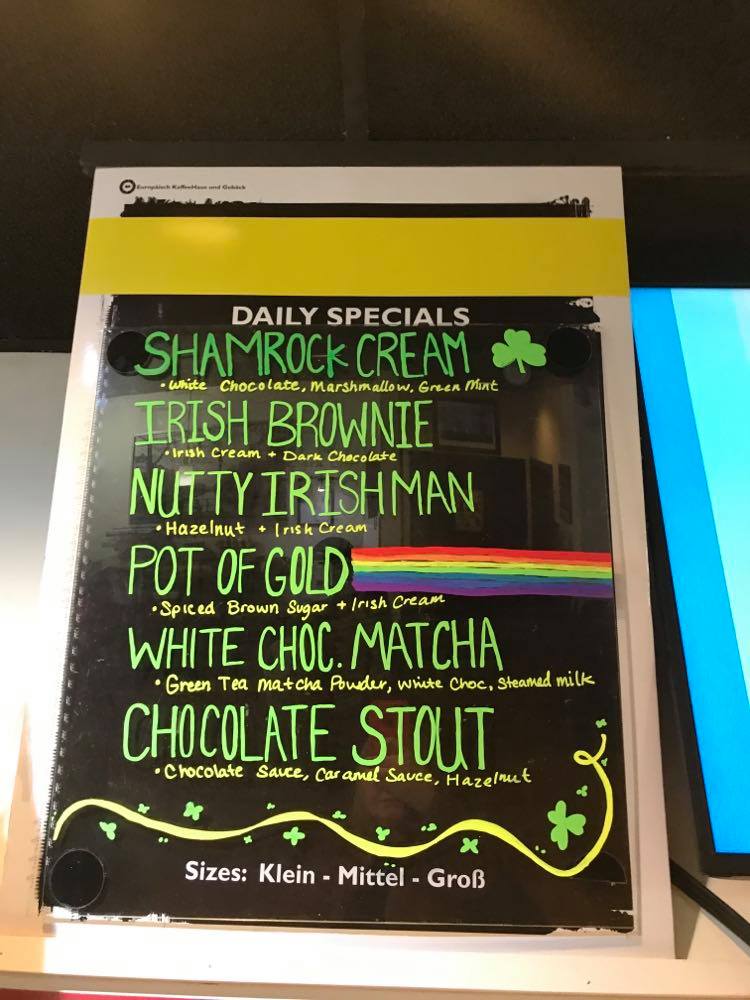 Europäisch KaffeeHaus und Gebäck
DAILY SPECIALS
SHAMROCK CREAM
• White Chocolate, Marshmallow, Green Mint
IRISH BROWNIE
• Irish Cream + Dark Chocolate
NUTTY IRISHMAN
• Hazelnut + Irish Cream
POT OF GOLD
• Spiced Brown Sugar + Irish Cream
WHITE CHOC. MATCHA
• Green Tea Matcha Powder, White Choc, Steamed milk
CHOCOLATE STOUT
• Chocolate Sauce, Caramel Sauce, Hazelnut
Sizes: Klein - Mittel - Groß